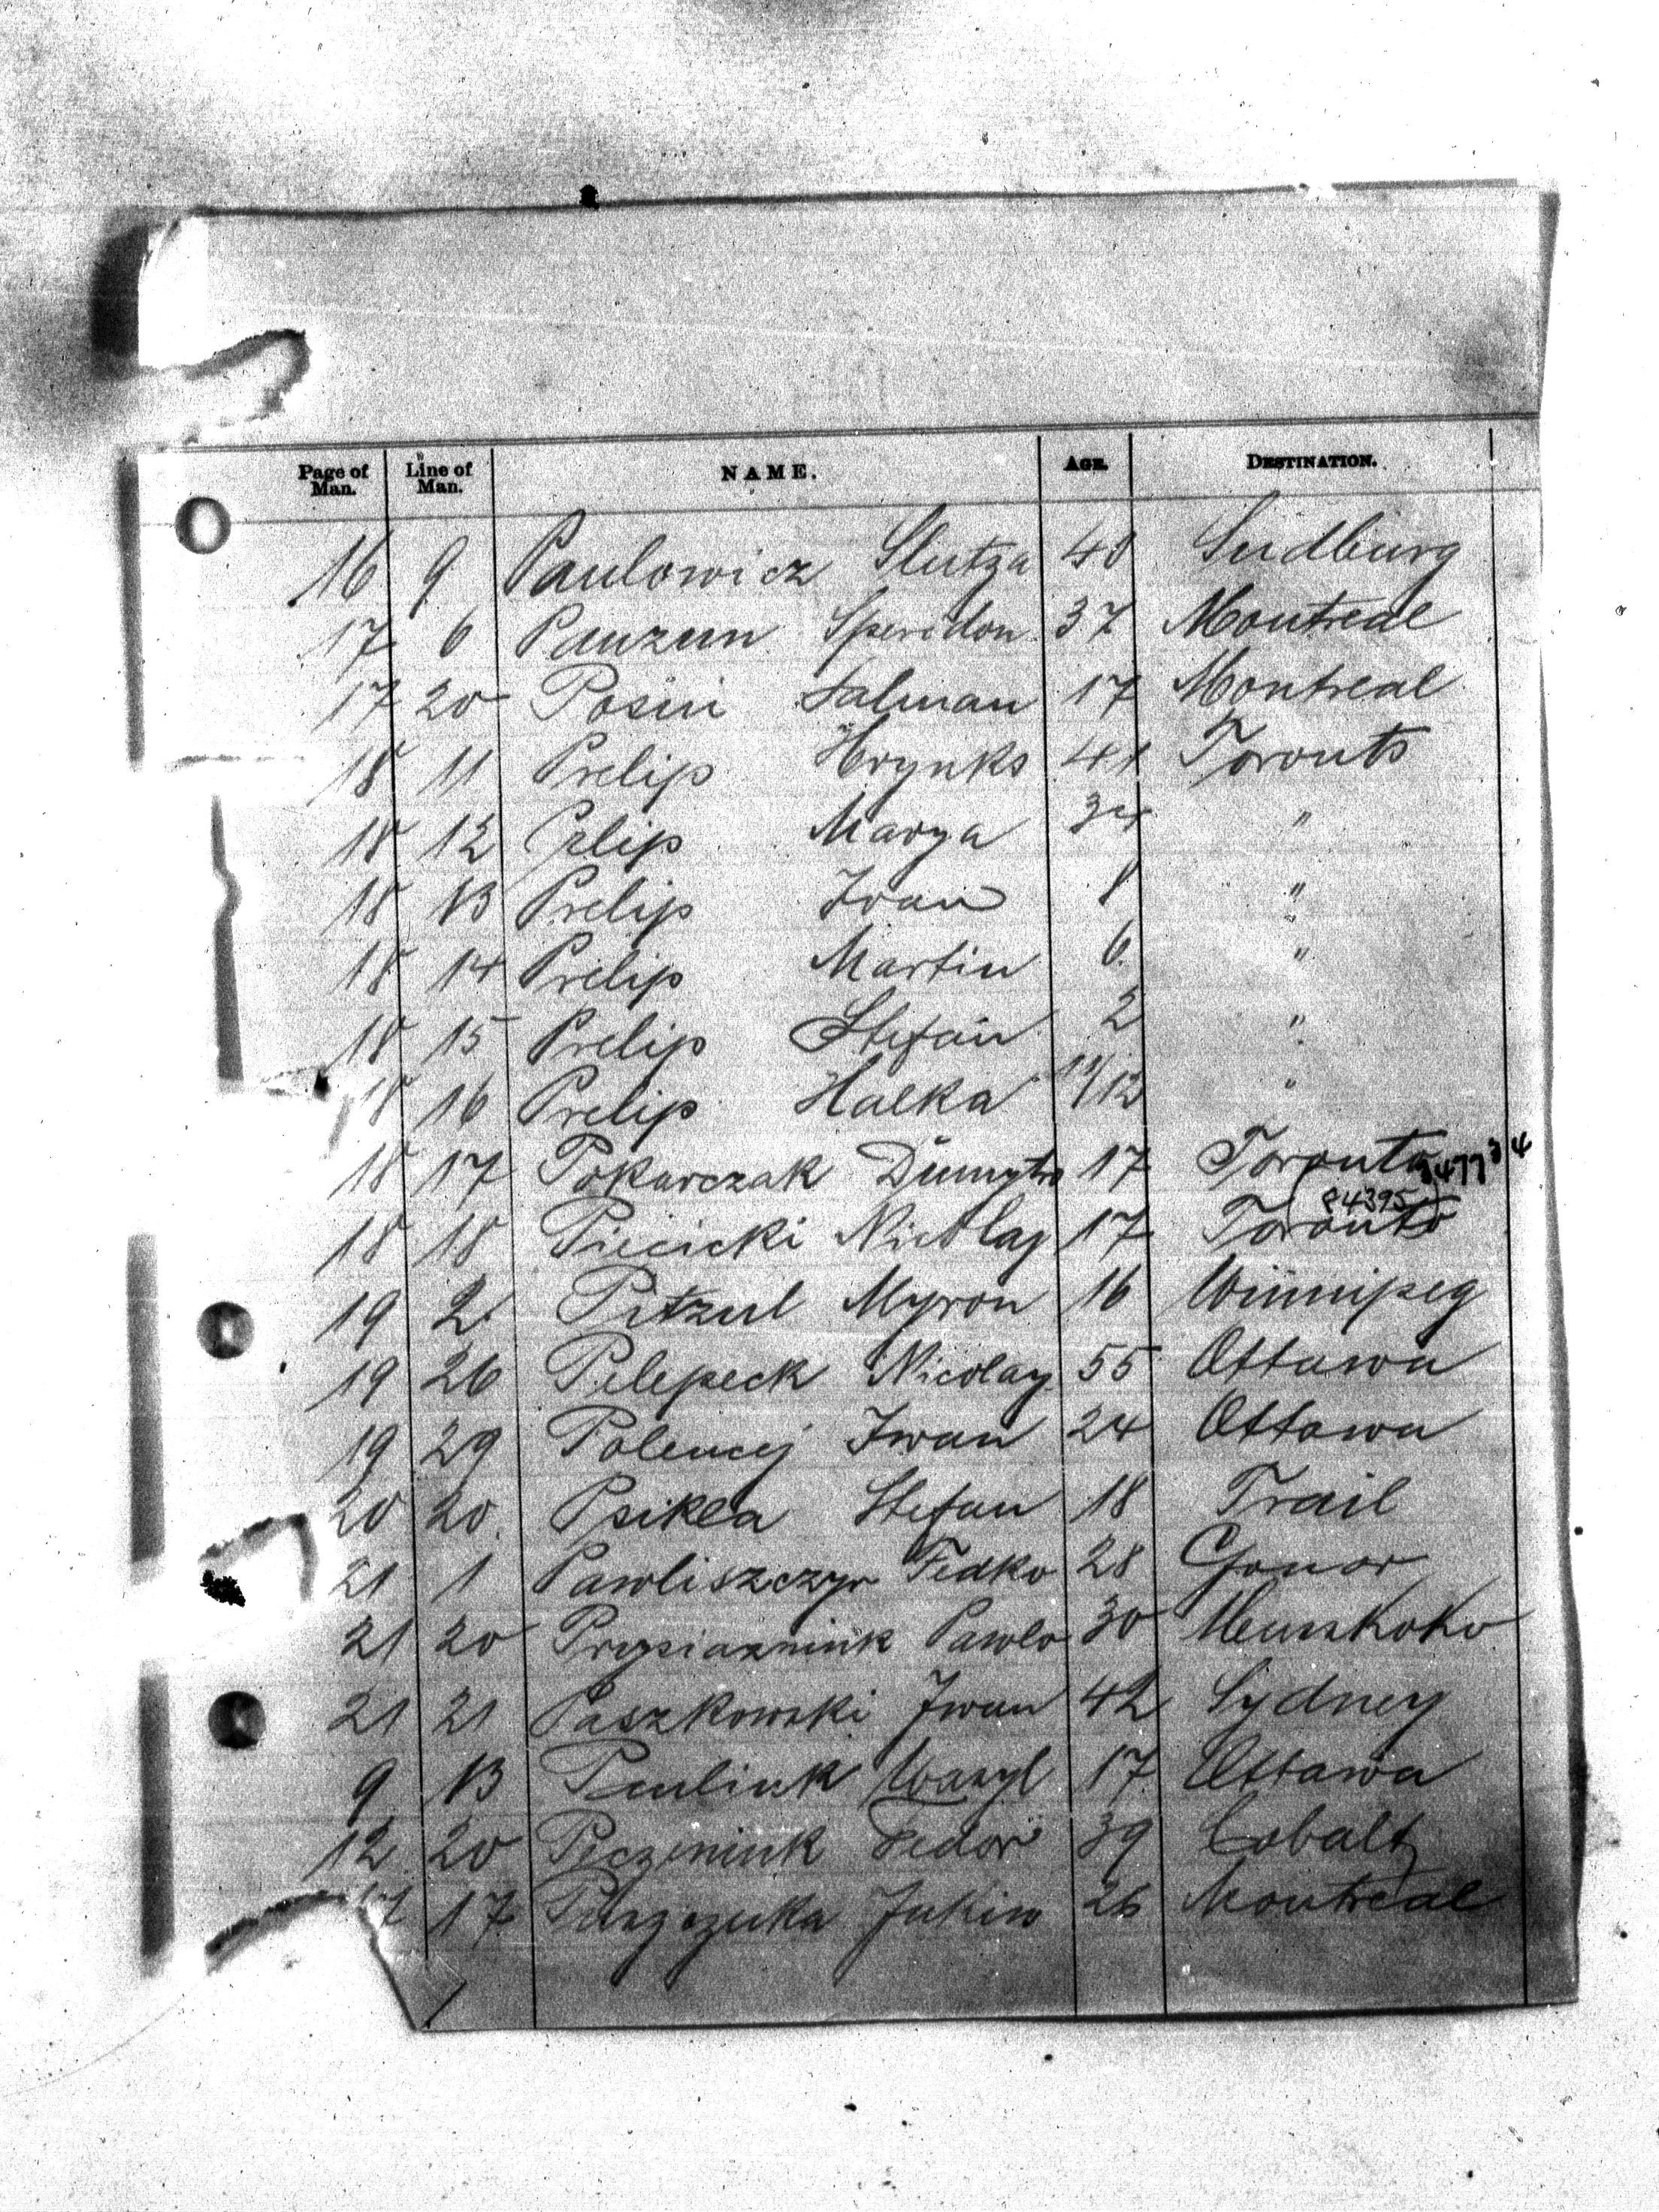 Page of Man. Line of Man. NAME. AGE. DESTINATION.
16 9 Paulowicz Slutza 40 Sudburg
17 6 Pauzun Speridon 37 Montreal
17 20 Posin Salman 17 Montreal
18 11 Prelip Hrynko 41 Toronto
18 12 Prelip Marya 34 "
18 13 Prelip Ivan 8 "
18 14 Prelip Martin 6 "
18 15 Prelip Stefan 2 "
18 16 Prelip Halka 11/12 "
18 17 Pokarczak Dumytro 17 Toronto
(84395)
18 18 Piecicki Nicolay 17 Toronto
19 2 Pitzul Myron 16 Winnipeg
19 26 Pelepeck Nicolay 55 Ottawa
19 29 Polency Iwan 24 Ottawa
20 20 Psikla Stefan 18 Trail
21 1 Pawliszczyn Fedko 28 Gonor
21 20 Prysiazniuk Pawlo 30 Muskoko
21 21 Paszkowski Iwan 42 Sydney
9 13 Pauliuk Wasyl 17 Ottawa
12 20 Peczeniuk Fedor 39 Cobalt
17 Jukiw 26 Montreal